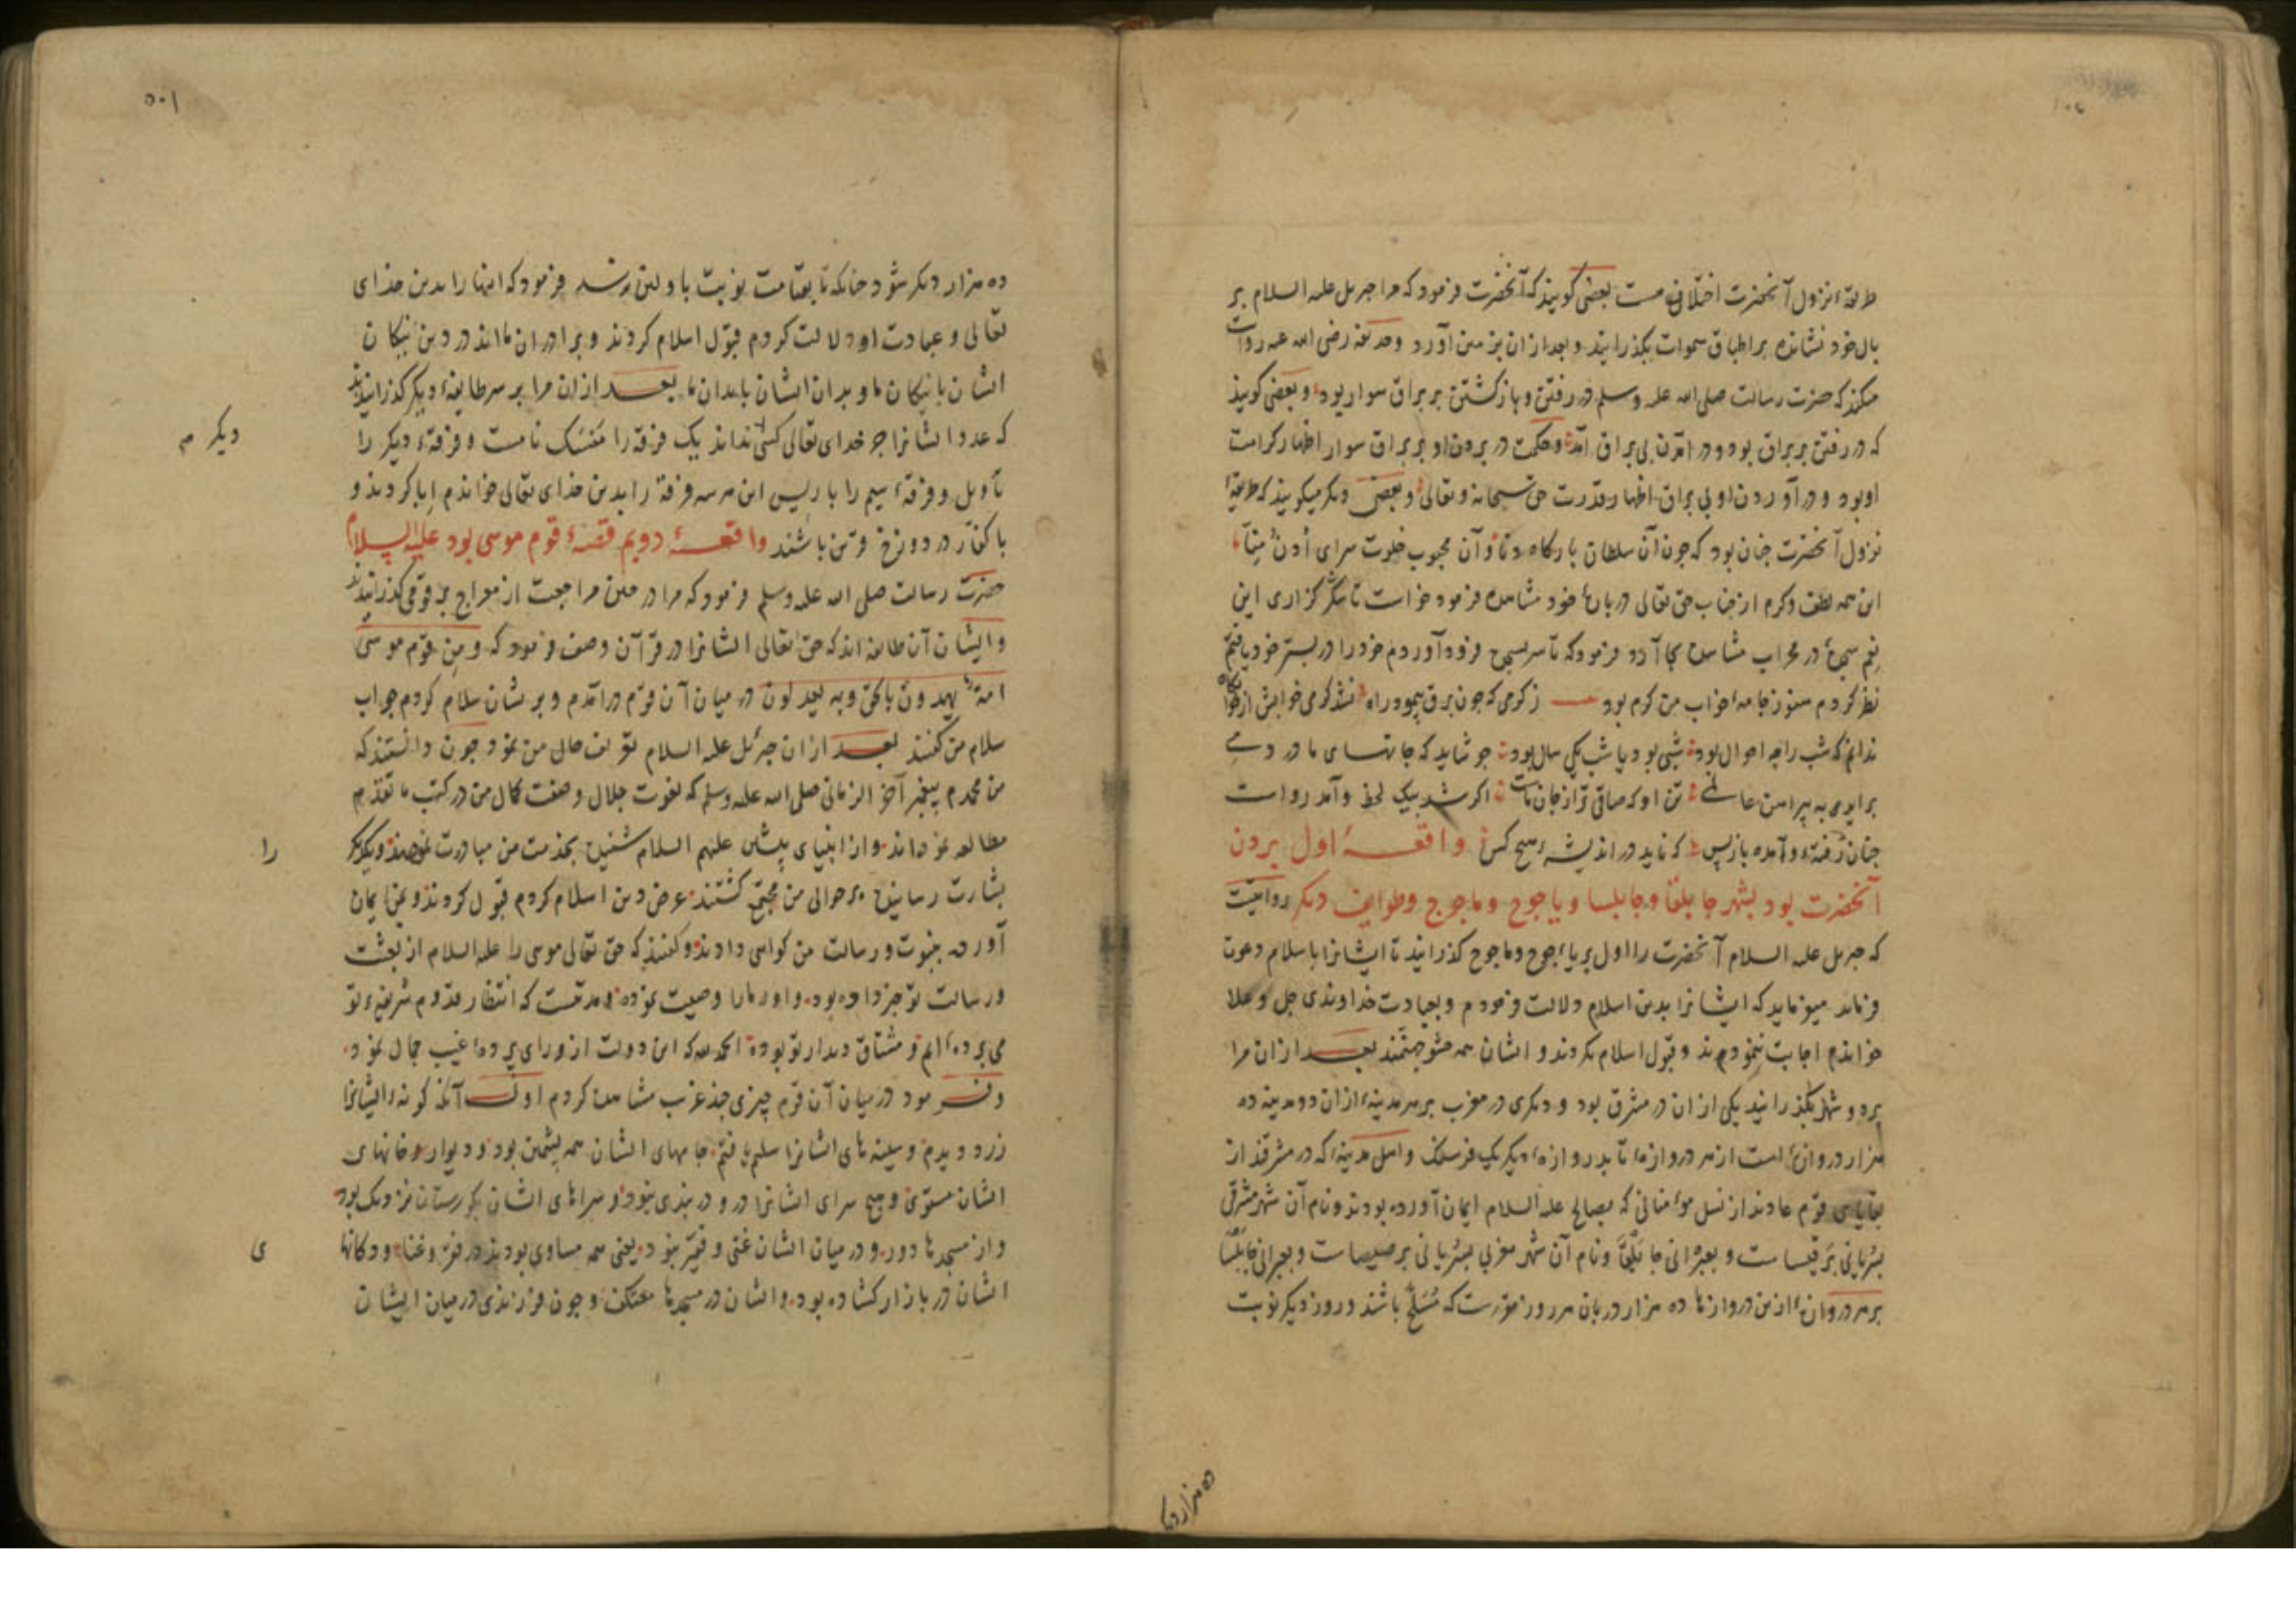 طریقهٔ نزول آنحضرت اختلافی هست بعضی گویند که آنحضرت فرمود که مرا جبرئیل علیه السلام بر
بال خود نشانده بر اطباق سموات بگذرانید و بعد از آن بزمین آورد و حذیفه رضی الله عنه روایت
میکند که حضرت رسالت صلی الله علیه وسلم در رفتن و بازگشتن بر براق سوار بود و بعضی گویند
که در رفتن بر براق بود و در آمدن بی براق آمد و حکمت در بردن او بر براق سوار اظهار کرامت
او بود و در آوردن او بی براق اظهار قدرت حق سبحانه و تعالی و بعضی دیگر میگویند که طریقهٔ
نزول آنحضرت چنان بود که چون آن سلطان بارگاه دنا و آن محبوب خلوت سرای أُدْنُ مِنِّی
این همه لطف و کرم از جناب حق تعالی دربارهٔ خود مشاهده فرمود خواست تا شکرگزاری این
نعم در محراب مشاهده بجا آرد فرمود که تا سر بسجده فرود آوردم خود را در بستر خود یافتم
نظر کردم هنوز جامه خواب من گرم بود ز گرمی که چون برق پیمود راه نشد گرمی خوابش از خوابگاه
ندانم که شب را چه احوال بود شبی بود یا شب یکی سال بود چو شاید که جانهای ما در دمی
براید به پیرامن عالمی تن او که صافی تر از جان ماست اگر شد بیک لحظه و آمد رواست
چنان رفته و آمده بازپس که ناید در اندیشهٔ هیچ کس واقعهٔ اول بردن
آنحضرت بود بشهر جابلقا و جابلسا و یاجوج و ماجوج و طوایف دیگر روایتست
که جبرئیل علیه السلام آنحضرت را اول بر یاجوج و ماجوج گذرانید تا ایشانرا باسلام دعوت
فرماید میفرماید که ایشانرا بدین اسلام دلالت فرمودم و بعبادت خداوندی جل و علا
خواندم اجابت ننمودند و قبول اسلام نکردند و ایشان همه مستوجب جهنمند بعد از آن مرا
بر دو شهر بگذرانید یکی از آن در مشرق بود و دیگری در مغرب بر هر مدینهٔ از آن دو مدینه ده
هزار دروازه است از هر دروازهٔ تا بدروازهٔ دیگر یک فرسنگ و اهل مدینهٔ که در مشرقند از
بقایای قوم عادند از نسل مؤمنانی که بصالح علیه السلام ایمان آورده بودند و نام آن شهر مشرقی
بسریانی برقیساست و بعبرانی جابلقا و نام آن شهر مغربی بسریانی برجیساست و بعبرانی جابلسا
بر هر دروازهٔ ازین دروازها ده هزار دربان هر روز مقررست که مسلح باشند و روز دیگر نوبت
ده هزار دیگر
ده هزار دیگر شود چنانکه تا بقیامت نوبت باولین نرسد فرمود که اینها را بدین خدای
تعالی و عبادت او دلالت کردم قبول اسلام کردند و برادران مااند در دین نیکان
ایشان با نیکان ما و بدان ایشان با بدان ما بعد از آن مرا بر سر طایفهٔ دیگر گذرانیدند
که عدد ایشانرا جز خدای تعالی کسی نداند یک فرقه را منسک نامست و فرقهٔ دیگر را
دیگر
تأویل و فرقهٔ سیم را باریس این هر سه فرقه را بدین خدای تعالی خواندم ابا کردند و
با کفار در دوزخ قرین باشند واقعهٔ دویم قصهٔ قوم موسی بود علیه السلام
حضرت رسالت صلی الله علیه وسلم فرمود که مرا در حین مراجعت از معراج بر قومی گذرانیدند
و ایشان آن طایفه اند که حق تعالی ایشانرا در قرآن وصف فرمود که و من قوم موسی
امة یهدون بالحق وبه یعدلون در میان آن قوم درآمدم و بر ایشان سلام کردم جواب
سلام من گفتند بعد از آن جبرئیل علیه السلام تعریف حال من نمود چون دانستند که
من محمدم پیغمبر آخر الزمانی صلی الله علیه وسلم که نعوت جلال و صفت کمال من در کتب ما تقدم
مطالعه نموده اند و از انبیای پیشین علیهم السلام شنیده بخدمت من مبادرت نمودند و یکدیگر
را
بشارت رسانیده بر حوالی من مجتمع گشتند عرض دین اسلام کردم قبول کردند و بمن ایمان
آورده بنبوت و رسالت من گواهی دادند و گفتند که حق تعالی موسی را علیه السلام از بعثت
و رسالت تو خبر داده بود و او ما را وصیت نموده و مدتست که انتظار قدوم شریف تو
می برده ایم و مشتاق دیدار تو بوده الحمد لله که این دولت از ورای پردهٔ غیب جمال نمود
و فرمود در میان آن قوم چیزی چند غریب مشاهده کردم اول آنکه گونهٔ ایشانرا
زرد دیدم و سینه های ایشانرا سلیم یافتم جامهای ایشان همه پشمین بود و دیوار خانهای
ایشان مستوی و هیچ سرای ایشانرا در و دربندی نبود و سراهای ایشان بگورستان نزدیک بود
و از مسجدها دور و در میان ایشان غنی و فقیر نبود یعنی همه مساوی بودند در فقر و غنا و دکانها
ی
ایشان در بازار گشاده بود و ایشان در مسجدها معتکف و چون فرزندی در میان ایشان